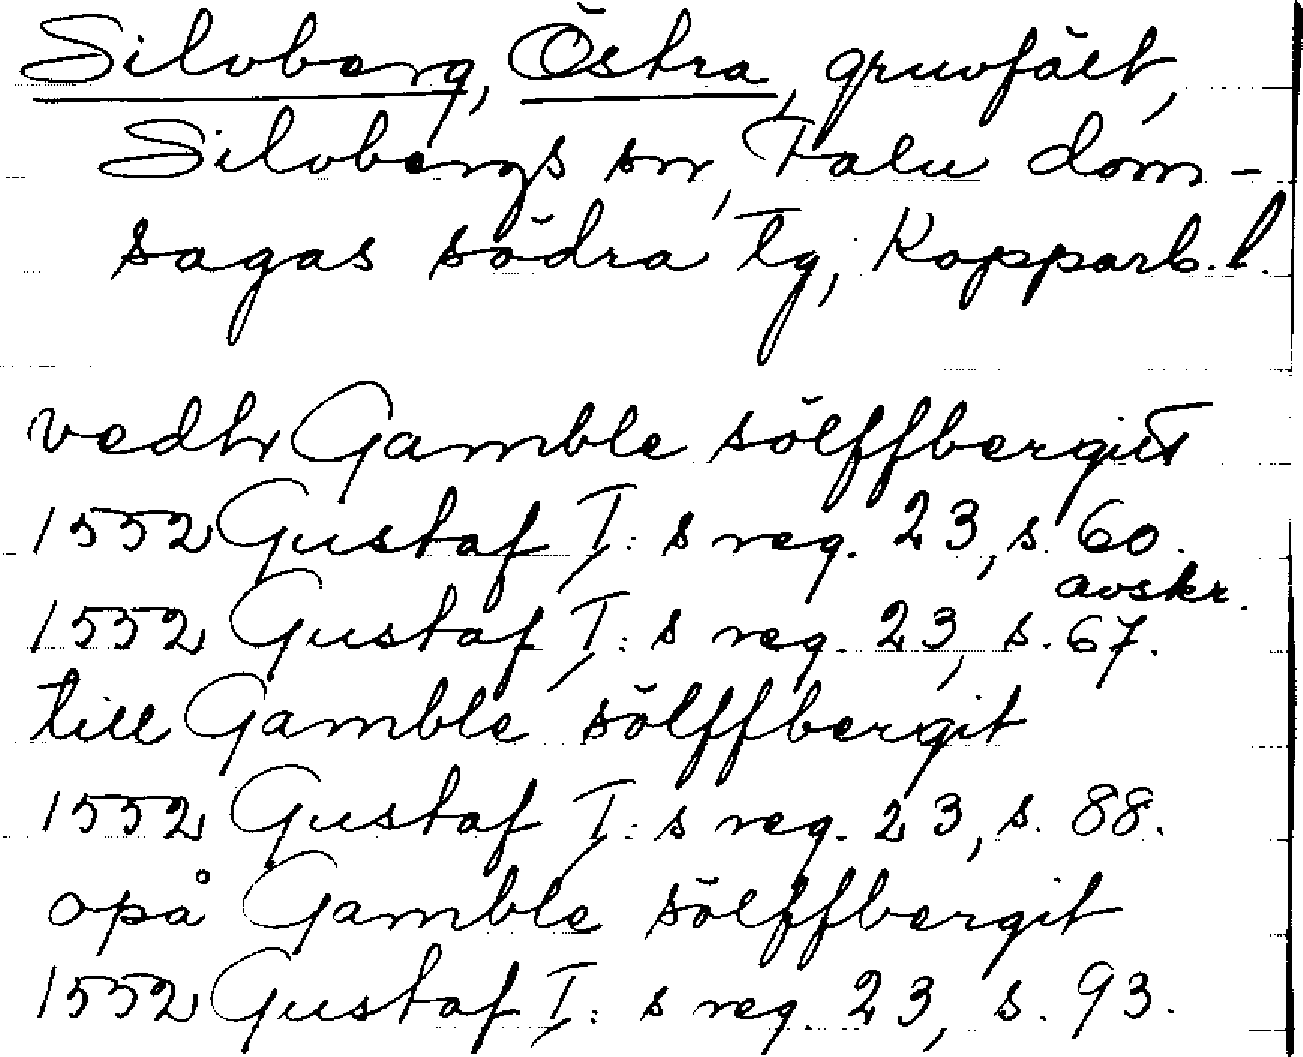 Silvberg, Östra, gruvfält,
Silvbergs sn, Falu dom-
sagas södra tg, Kopparb. l.
vedh Gamble sölffbergit
1552 Gustaf I: s reg. 23, s. 60.
avskr.
1552 Gustaf I: s reg. 23, s. 67.
till Gamble sölffbergit
1552 Gustaf I: s reg. 23, s. 88.
opå Gamble sölffbergit
1552 Gustaf I: s reg. 23, s. 93.